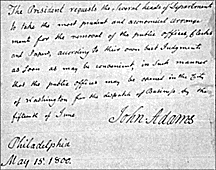 The President requests the several heads of Department
to take the most prudent and economical arrange
ment for the removal of the public offices, Clerks
and Papers, according to their own best Judgments
as soon as may be convenient, in such manner
that the public offices may be opened in the City
of Washington for the dispatch of Business by the
fifteenth of June
John Adams
Philadelphia
May 15. 1800.